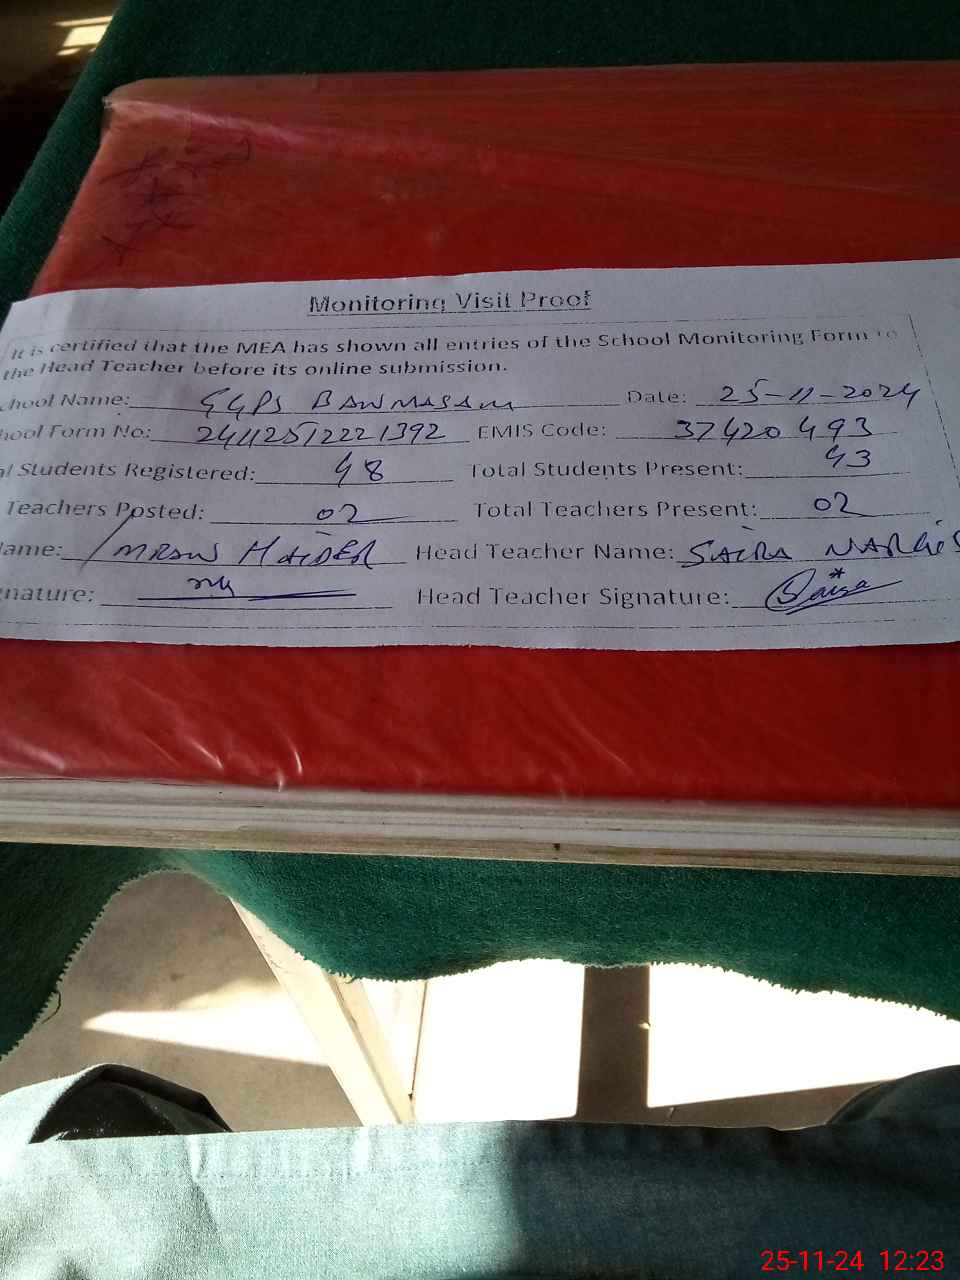 Monitoring Visit Proof
It is certified that the MEA has shown all entries of the School Monitoring Form to
the Head Teacher before its online submission.
chool Name: GGPS BAWMASAM Date: 25-11-2024
hool Form No: 24112512221392 EMIS Code: 37420493
al Students Registered: 48 Total Students Present: 43
Teachers Posted: 02 Total Teachers Present: 02
ame: IMRAN HAIDER Head Teacher Name: SAIRA NARGIS
nature: Head Teacher Signature: Saira
25-11-24 12:23